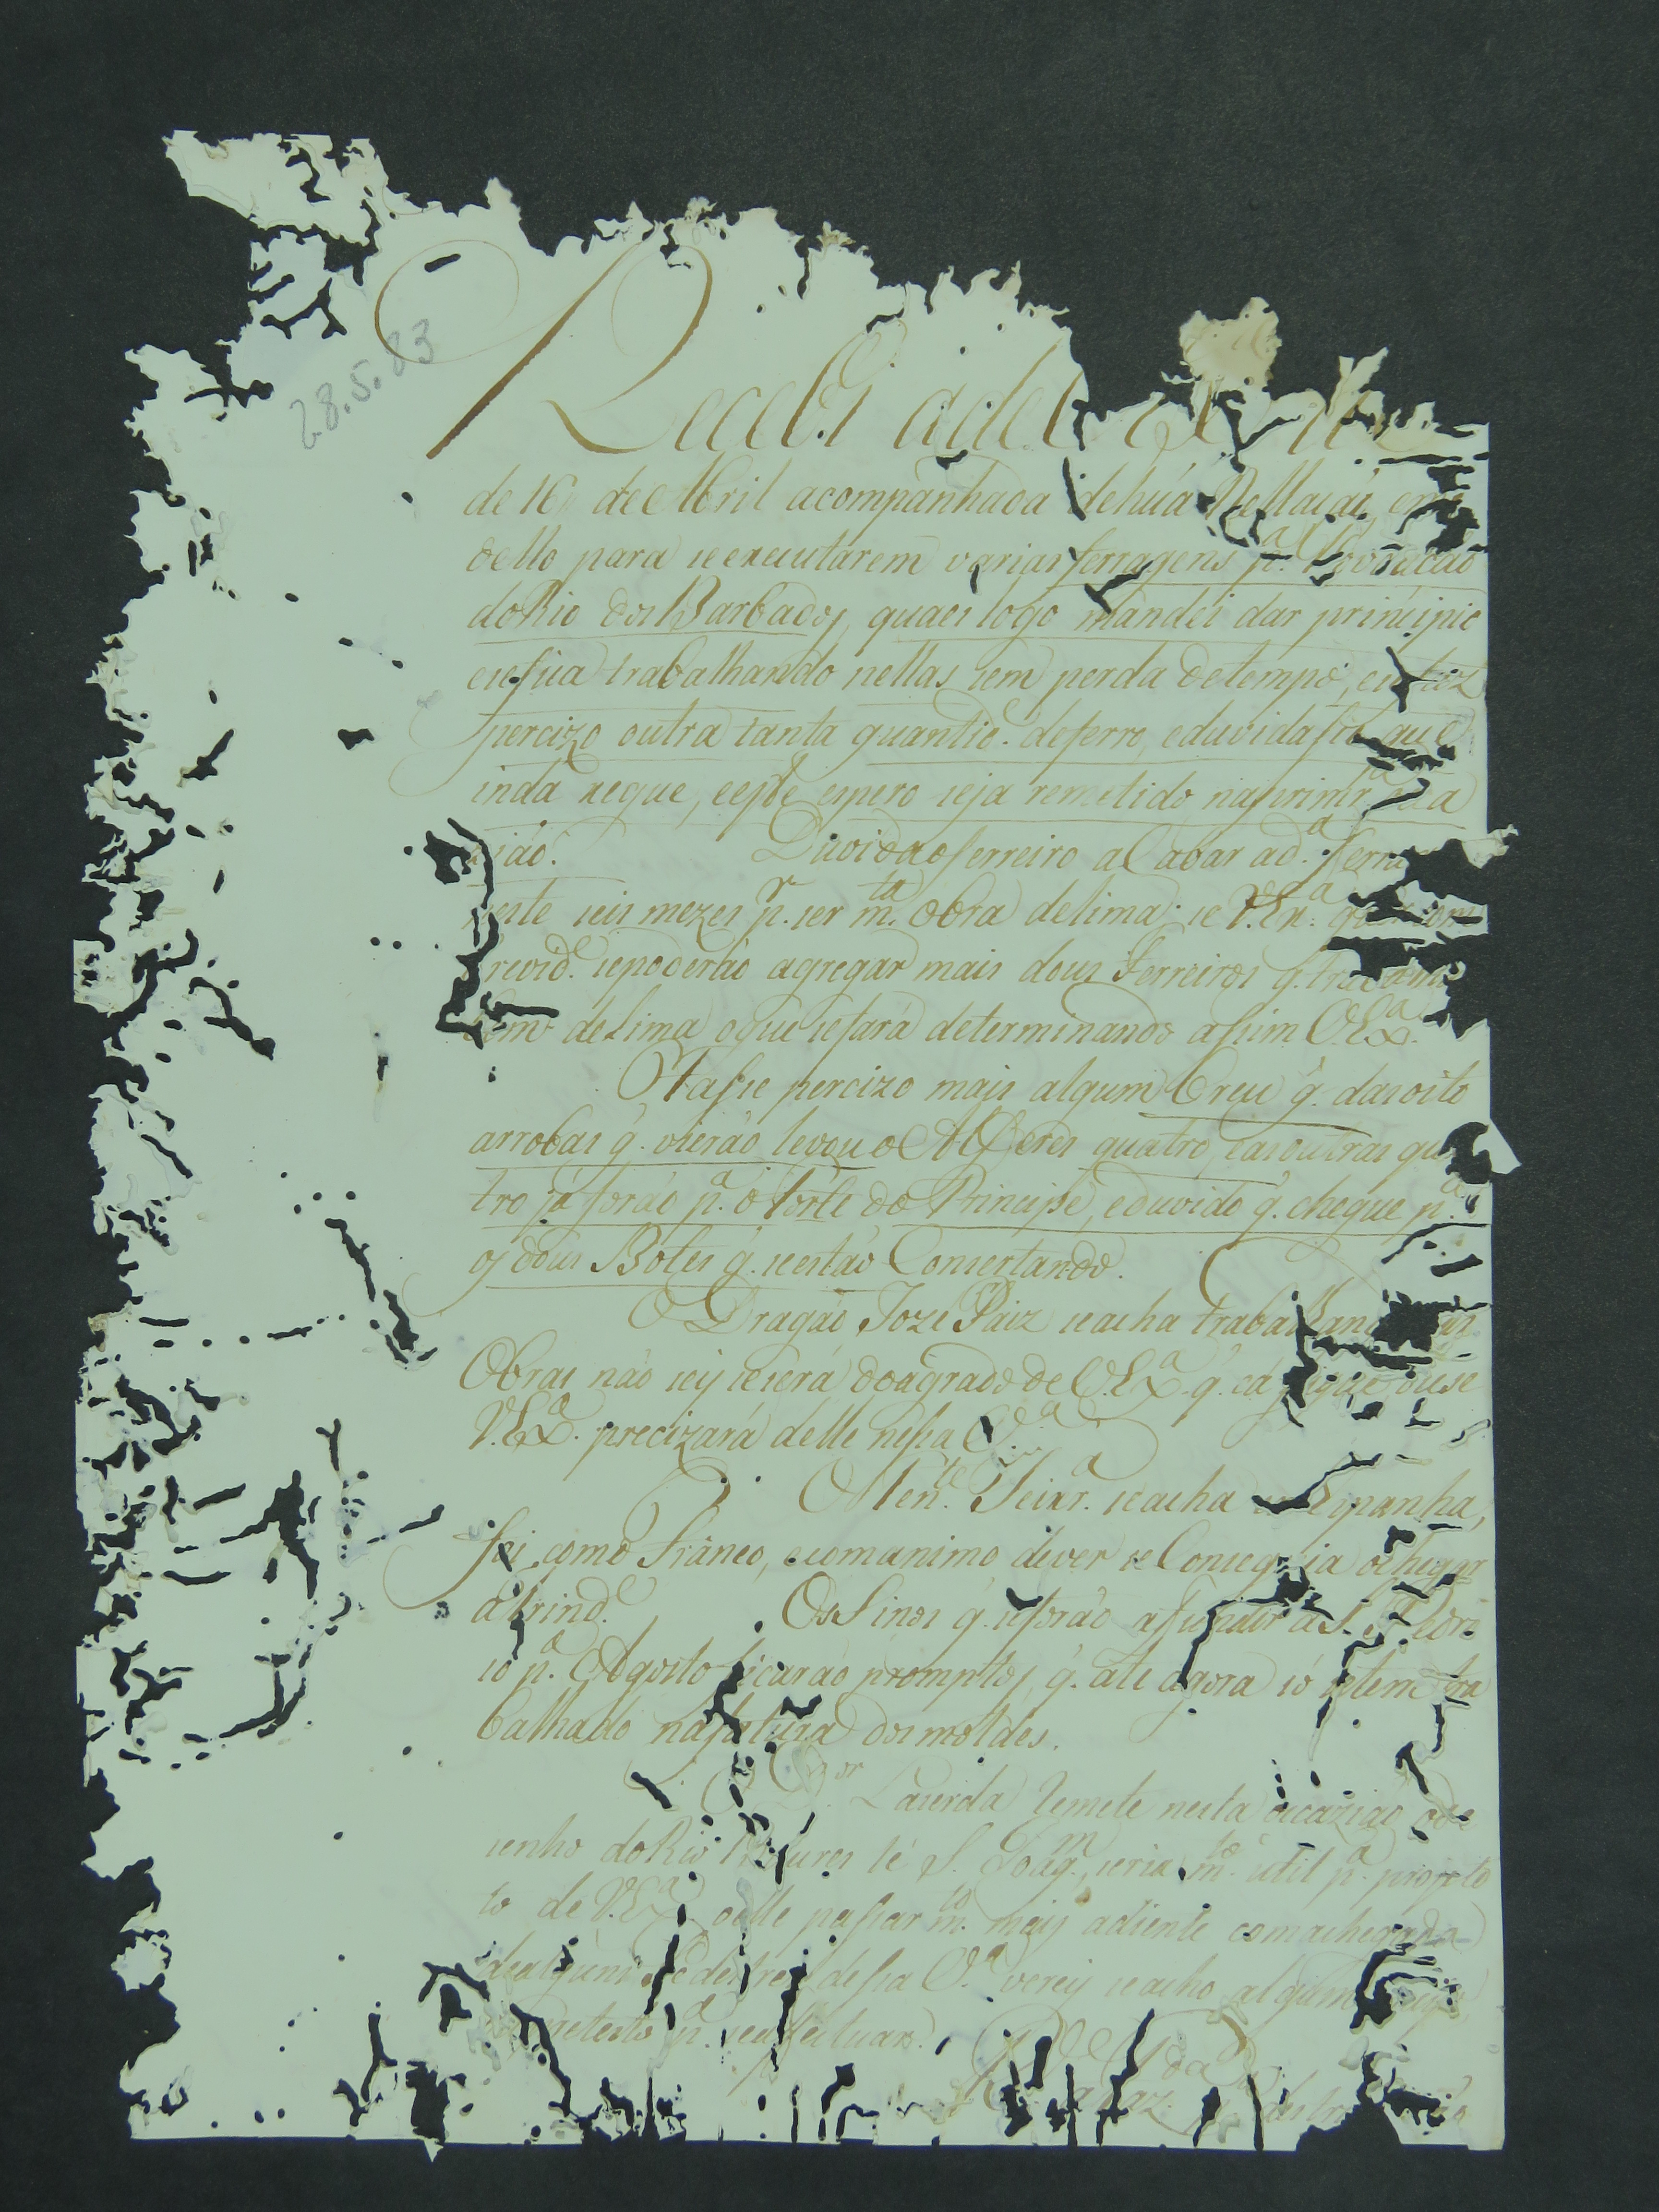 28.5.83
Recebi a de
de 16 de Abril acompanhada de huã Rellação, em
dello para se executarem varias ferragens p.ª Povoação
do Rio dos Barbados, quaes logo mandei dar principio
e se fica trabalhando nellas sem perda de tempo, e se fez
percizo outra tanta quantid.e de ferro, e duvida se que
inda xegue, e este espero seja remetido na primr.ª
zião. Duvida o ferreiro acabar a d.ª ferra
seis mezes p.r ser m.ta obra de lima; se V. Ex.ª
brevid.e se poderáo agregar mais dous Ferreiros q. trabalhe
bem de Lima o que se fará determinando assim V. Ex.ª
Hasse percizo mais algum Breu q. das oito
arrobas q. vierão levou o Alferes quatro, e as outras qua
tro já forão p.ª o Forte do Principe, e duvido q. chegue p.ª
os dous Botes q. se estáo Consertando.
O Dragáo Joze Paiz se acha trabalhando nas
Obras não sey se será do agrado de V. Ex.ª q. cá fique ou se
V. Ex.ª precizará delle nessa V.ª
O Ten.te Seixr.ª se acha em Espanha,
foi como Franco, e com animo de ver se Conseguia o chegar
a Trind.e Os Sinos q. se forão a fundir a S. Pedro
só p.ª Agosto ficaráo promptos, q. ate agora só se tem tra
balhado na factura dos moldes.
Lacerda remete nesta occazião o de
senho do Rio té S. Joaq.m, seria m.to util p.ª projecto
to de V. Ex.ª delle passar m.to mais adiente com a chegada
de alguns Pedestres dessa V.ª verey se acho algum
pretexto p.ª se effectuar.